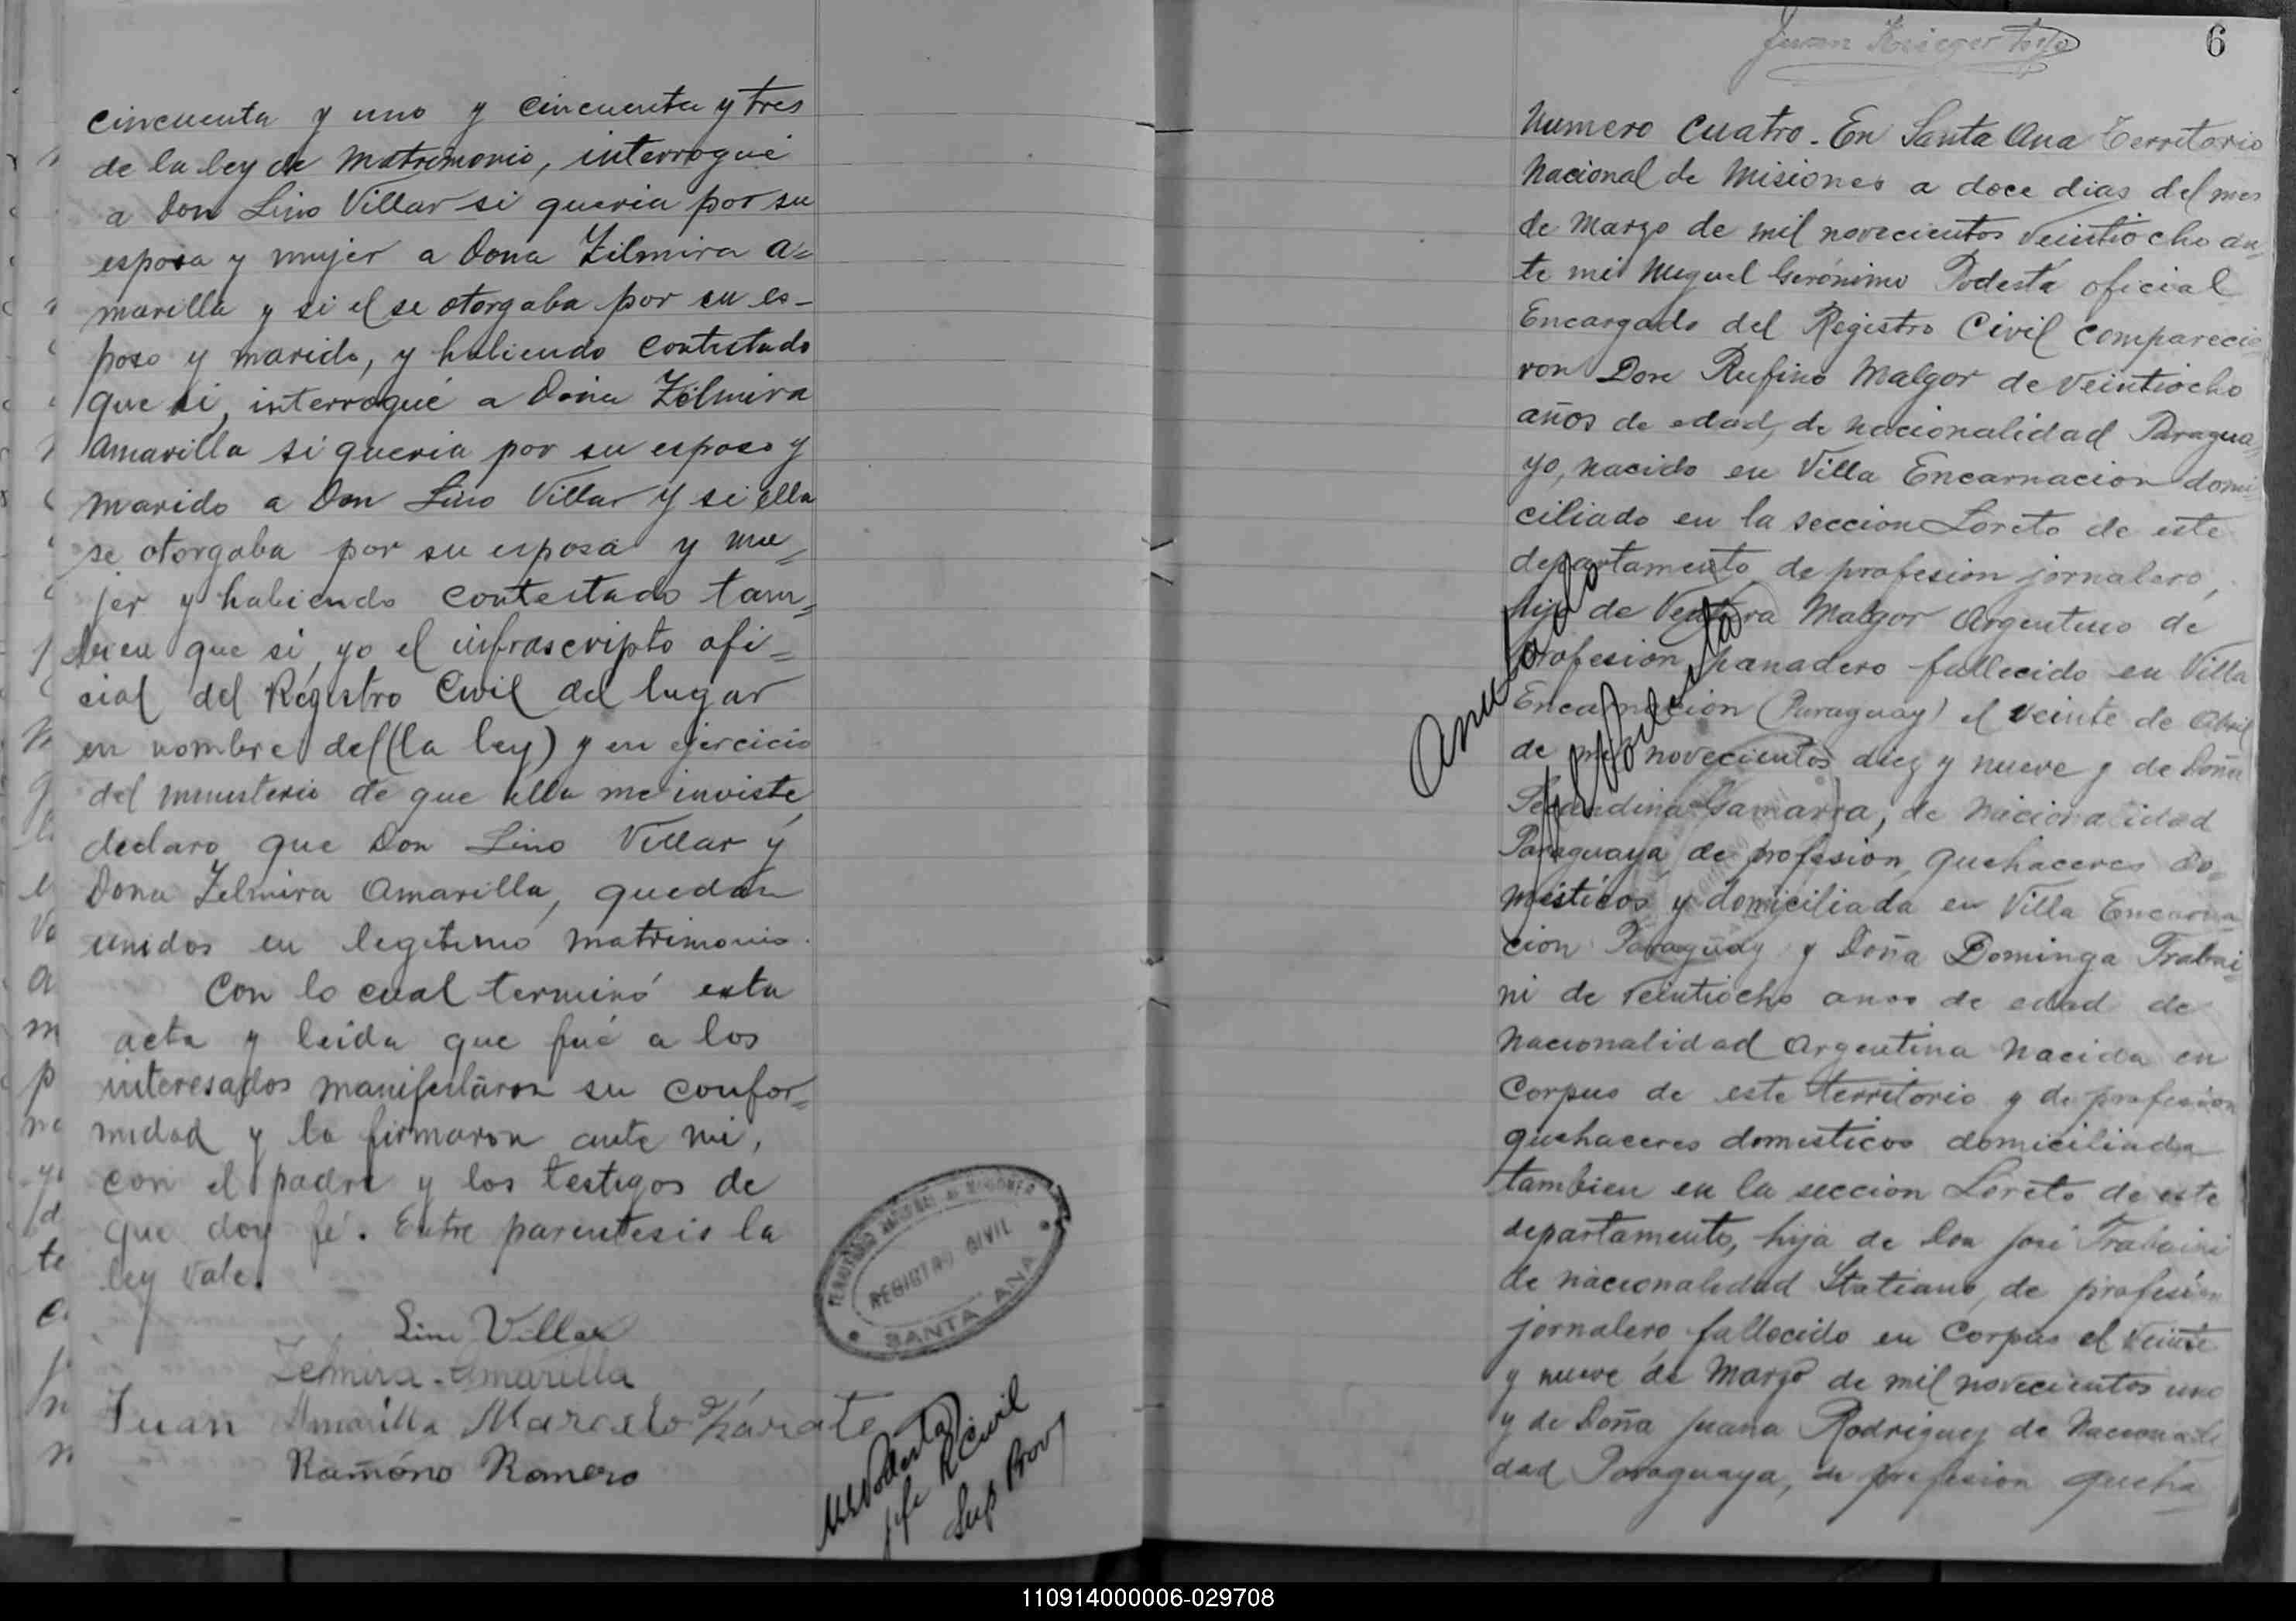 cincuenta y uno y cincuenta y tres
de la ley de Matrimonio, interrogué
a Don Lino Villar si queria por su
esposa y mujer a Dona Zilmira A=
marilla y si el se otorgaba por su es-
poso y marido, y habiendo contestado
que si, interrogué a Dona Zilmira
Amarilla si queria por su esposo y
marido a Don Lino Villar y si ella
se otorgaba por su esposa y mu=
jer y habiendo contestado tam=
bien que si, yo el infrascripto ofi=
cial del Registro Civil del lugar
en nombre del (la ley) y en ejercicio
del ministerio de que ella me inviste,
declaro que Don Lino Villar y
Dona Zelmira Amarilla, quedan
unidos en legitimo matrimonio.
Con lo cual terminó esta
acta y leida que fué a los
interesados manifestáron su confor=
midad y la firmaron ante mi,
con el padre y los testigos de
que doy fé. Entre parentesis la
ley Vale.
Lino Villar
Zelmira Amarilla
Juan Amarilla Marcelo Zárate
Ramóno Romero
TERRITORIO NACIONAL DE MISIONES
REGISTRO CIVIL
SANTA ANA
MG Podestá
jefe R Civil
Sup Prov
Juan Krieger
6
Numero Cuatro. En Santa Ana Territorio
Nacional de Misiones a doce dias del mes
de Marzo de mil novecientos veintiocho an=
te mi Miguel Gerónimo Podestá oficial
Encargado del Registro Civil comparecie
ron Don Rufino Malgor de veintiocho
años de edad, de nacionalidad Paragua=
yo, nacido en Villa Encarnacion domi
ciliado en la seccion Loreto de este
departamento de profesion jornalero,
hijo de Ventura Malgor Argentino de
profesion panadero fallecido en Villa
Encarnacion (Paraguay) el veinte de Abril
de mil novecientos diez y nueve y de Doña
Secundina Gamarra, de nacionalidad
Paraguaya de profesion, quehaceres do=
mésticos y domiciliada en Villa Encarna
cion Paraguay y Doña Dominga Trabai=
ni de veintiocho anos de edad de
nacionalidad Argentina nacida en
Corpus de este territorio y de profesion
quehaceres domesticos domiciliada
tambien en la seccion Loreto de este
departamento, hija de Don José Trabaini
de nacionalidad Italiano, de profesion
jornalero, fallecido en Corpus el veinte
y nueve de Marzo de mil novecientos uno
y de Doña Juana Rodriguez de Nacionali
dad Paraguaya, de profesion queha
Anulado
Podestá
110914000006-029708